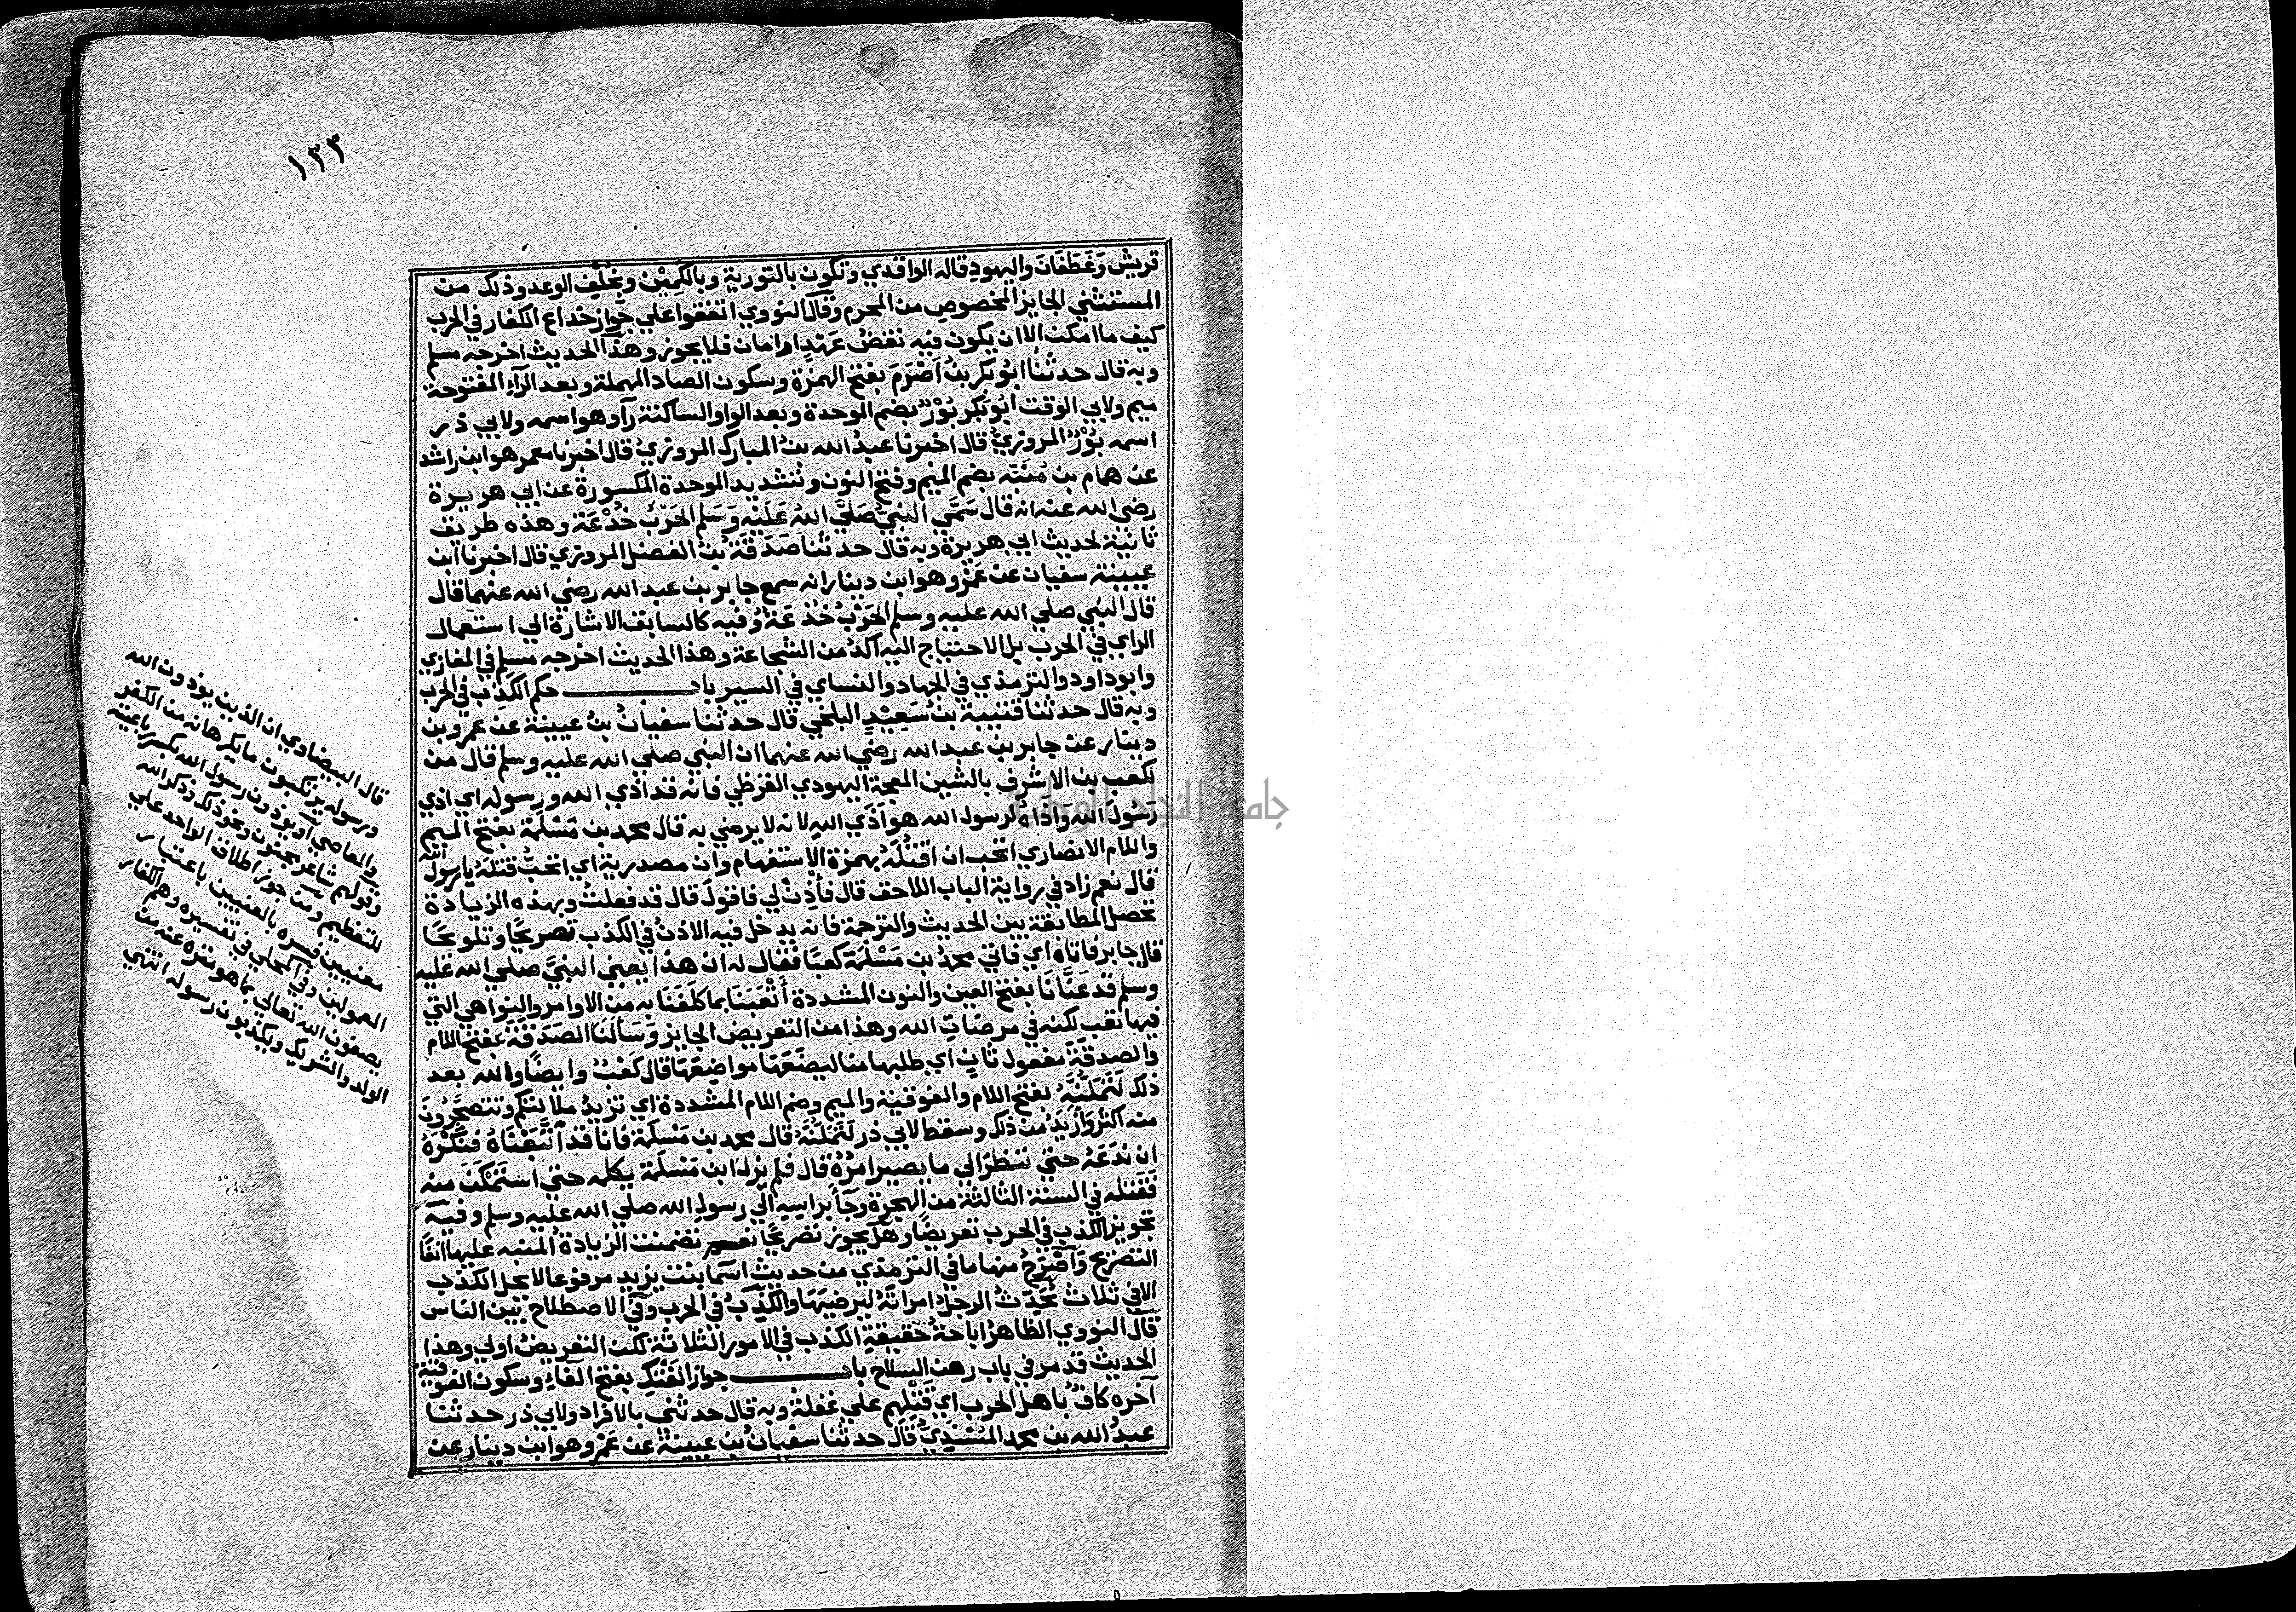 ١٣٣
قريش وَغَطَفَانَ واليهودِ قاله الواقدي وتكون بالتورية وبالكَمِيْن وبخُلْفِ الوعد وذلك من
المستثني الجايز المخصوصِ من المحرم وقال النووي اتفقوا علي جواز خداع الكفار في الحرب
كيف ما امكن الا ان يكون فيه نقضُ عَهْدٍ او امان فلا يجوز وهذا الحديث اخرجه مسلم
وبه قال حدثنا ابو بكر بنُ اَصْرَمَ بفتح الهمزة وسكون الصاد المهملة وبعد الرآء المفتوحة
ميم ولابي الوقت ابو بكر بُوْرٌ بضم الموحدة وبعد الواو الساكنة رآء وهو اسمه ولابي ذر
اسمه بُوْرٌ المروزيُّ قال اخبرنا عبدُ الله بنُ المبارك المروزيُ قال اخبرنا معمر هو ابن راشد
عن همام بن مُنَبّه بضم الميم وفتح النون وتشديد الموحدة المكسورة عن ابي هريرة
رضي الله عنه انه قال سَمَّي النبيُ صَلَيَّ اللهُ عَلَيْهِ وَسَلم الحَرْبَ خُدْعَة وهذه طريق
ثانية لحديث ابي هريرة وبه قال حدثنا صَدَقَةُ بنُ الفضل المروزي قال اخبرنا ابن
عيينة سفيان عن عَمْرٍو هو ابن دينار انه سمع جابر بن عبد الله رضي الله عنهما قال
قال النبي صلي الله عليه وسلم الحَرْبُ خُدْعَةٌ وفيه كالسابق الاشارة الي استعمال
الراي في الحرب بل الاحتياج اليه آكد من الشجاعة وهذا الحديث اخرجه مسلم في المغازي
وابو داود والترمذي في الجهاد والنساي في السير باب حكم الكَذِب في الحرب
وبه قال حدثنا قتيبة بنُ سَعِيْدٍ البلخي قال حدثنا سفيانُ بنُ عيينة عن عمرو بن
دينار عن جابر بن عبد الله رضي الله عنهما ان النبي صلي الله عليه وسلم قال من
لكعب بن الاشرف بالشين المعجمة اليهودي القرظي فانه قد اذي الله ورسوله اي اذي
رَسُولَ الله وَأذَاهُ لرسول الله هو أذَي اللهِ لانه لا يرضي به قال محمد بن مَسْلَمَةَ بفتح الميم
واللام الانصاري اتحب ان اقتُلَهُ بهمزة الاستفهام وان مصدرية اي اتحبُّ قتلَهُ يارسولَ الله
قال نعم زاد في رواية الباب اللاحق قال فأْذِنْ لي فاقولَ قال قد فعلتُ وبهذه الزيادة
تحصل المطابقة بين الحديث والترجمة فانه يدخل فيه الاذنُ في الكذب تصريحًا وتلويحًا
قال جابر فاتاهُ اي فاتي محمدُ بن مَسْلَمَةَ كعبًا فقال له ان هذا يعني النبيَّ صلي الله عليه
وسلم قد عَنَّانَا بفتح العين والنون المشددة أَتْعَبَنَا بما كلَفَنَا به من الاوامر والنواهي التي
فيها تعب لكنه في مرضَاتِ الله وهذا من التعريض الجايز وَسَألَنَا الصَدَقَةَ بفتح اللام
والصدقةَ مفعول ثانٍ اي طلبها منا ليضَعَهَا مواضِعَهَا قال كَعْبٌ وايضًا والله بعد
ذلك لَتَمَلُّنَّهُ بفتح اللام والفوقية والميم وضم اللام المشددة اي تزيدُ ملالتكم وتتضجَّرُونَ
منه اكثرَ وَازْيَدَ من ذلك وسقط لابي ذر لَتَمَلُنَّهُ قال محمد بن مَسْلَمَة فانا قد اتَّبَعْنَاهُ فنَكْرَهُ
ان نَدَعَهُ حتي ننظرَ الي ما يصير امرُهُ قال فلم يزل ابن مَسْلَمَة يكلمه حتي استَمْكَنَ منه
فقتله في السنة الثالثة من الهجرة وجآء براسِهِ الي رسول الله صلي الله عليه وسلم وفيه
تجويز الكذب في الحرب تعريضًا وهل يجوز تصريحًا نعم تضمنت الزيادةُ المنبه عليها انفًا
التصريح وَأصْرَحُ منها ما في الترمذي من حديث اسمآ بنت يزيد مرفوعا لا يحل الكذب
الا في ثلاث تُحَدِّثُ الرجلُ امراتَهُ ليرضيَهَا والكَذِبُ في الحرب وفي الاصطلاح بين الناس
قال النووي الظاهرُ اباحةُ حقيقةِ الكذب في الامور الثلاثة لكن التعريضُ اولي وهذا
الحديث قد مر في باب رهن السلاح باب جواز الفَتْكِ بفتح الفاءِ وسكون الفوقية
آخره كاف باهل الحرب اي قَتْلِهِم علي غفلة وبه قال حدثني بالافراد ولابي ذر حدثنا
عبدُ الله بن محمد المُسْنَدِيُّ قال حدثنا سفيانُ بن عيينة عن عَمْرٍو هو ابن دينار عن
قال البيضاوي ان الذين يوذون الله
ورسوله يرتكبون ما يكرهانه من الكفر
والمعاصي او يوذون رسول الله بكسر رباعيته
وقولهم شاعر مجنون ونحو ذلك وذكر الله
للتعظيم ومن جوز اطلاق الواحد علي
معنيين فسره بالمعنيين باعتبار
المعمولين وفي المحلي في تفسيره وهم الكفار
يصفون الله تعالي بما هو منزه عنه من
الولد والشريك ويكذبون رسوله انتهي
جامعة النجاح الوطنية